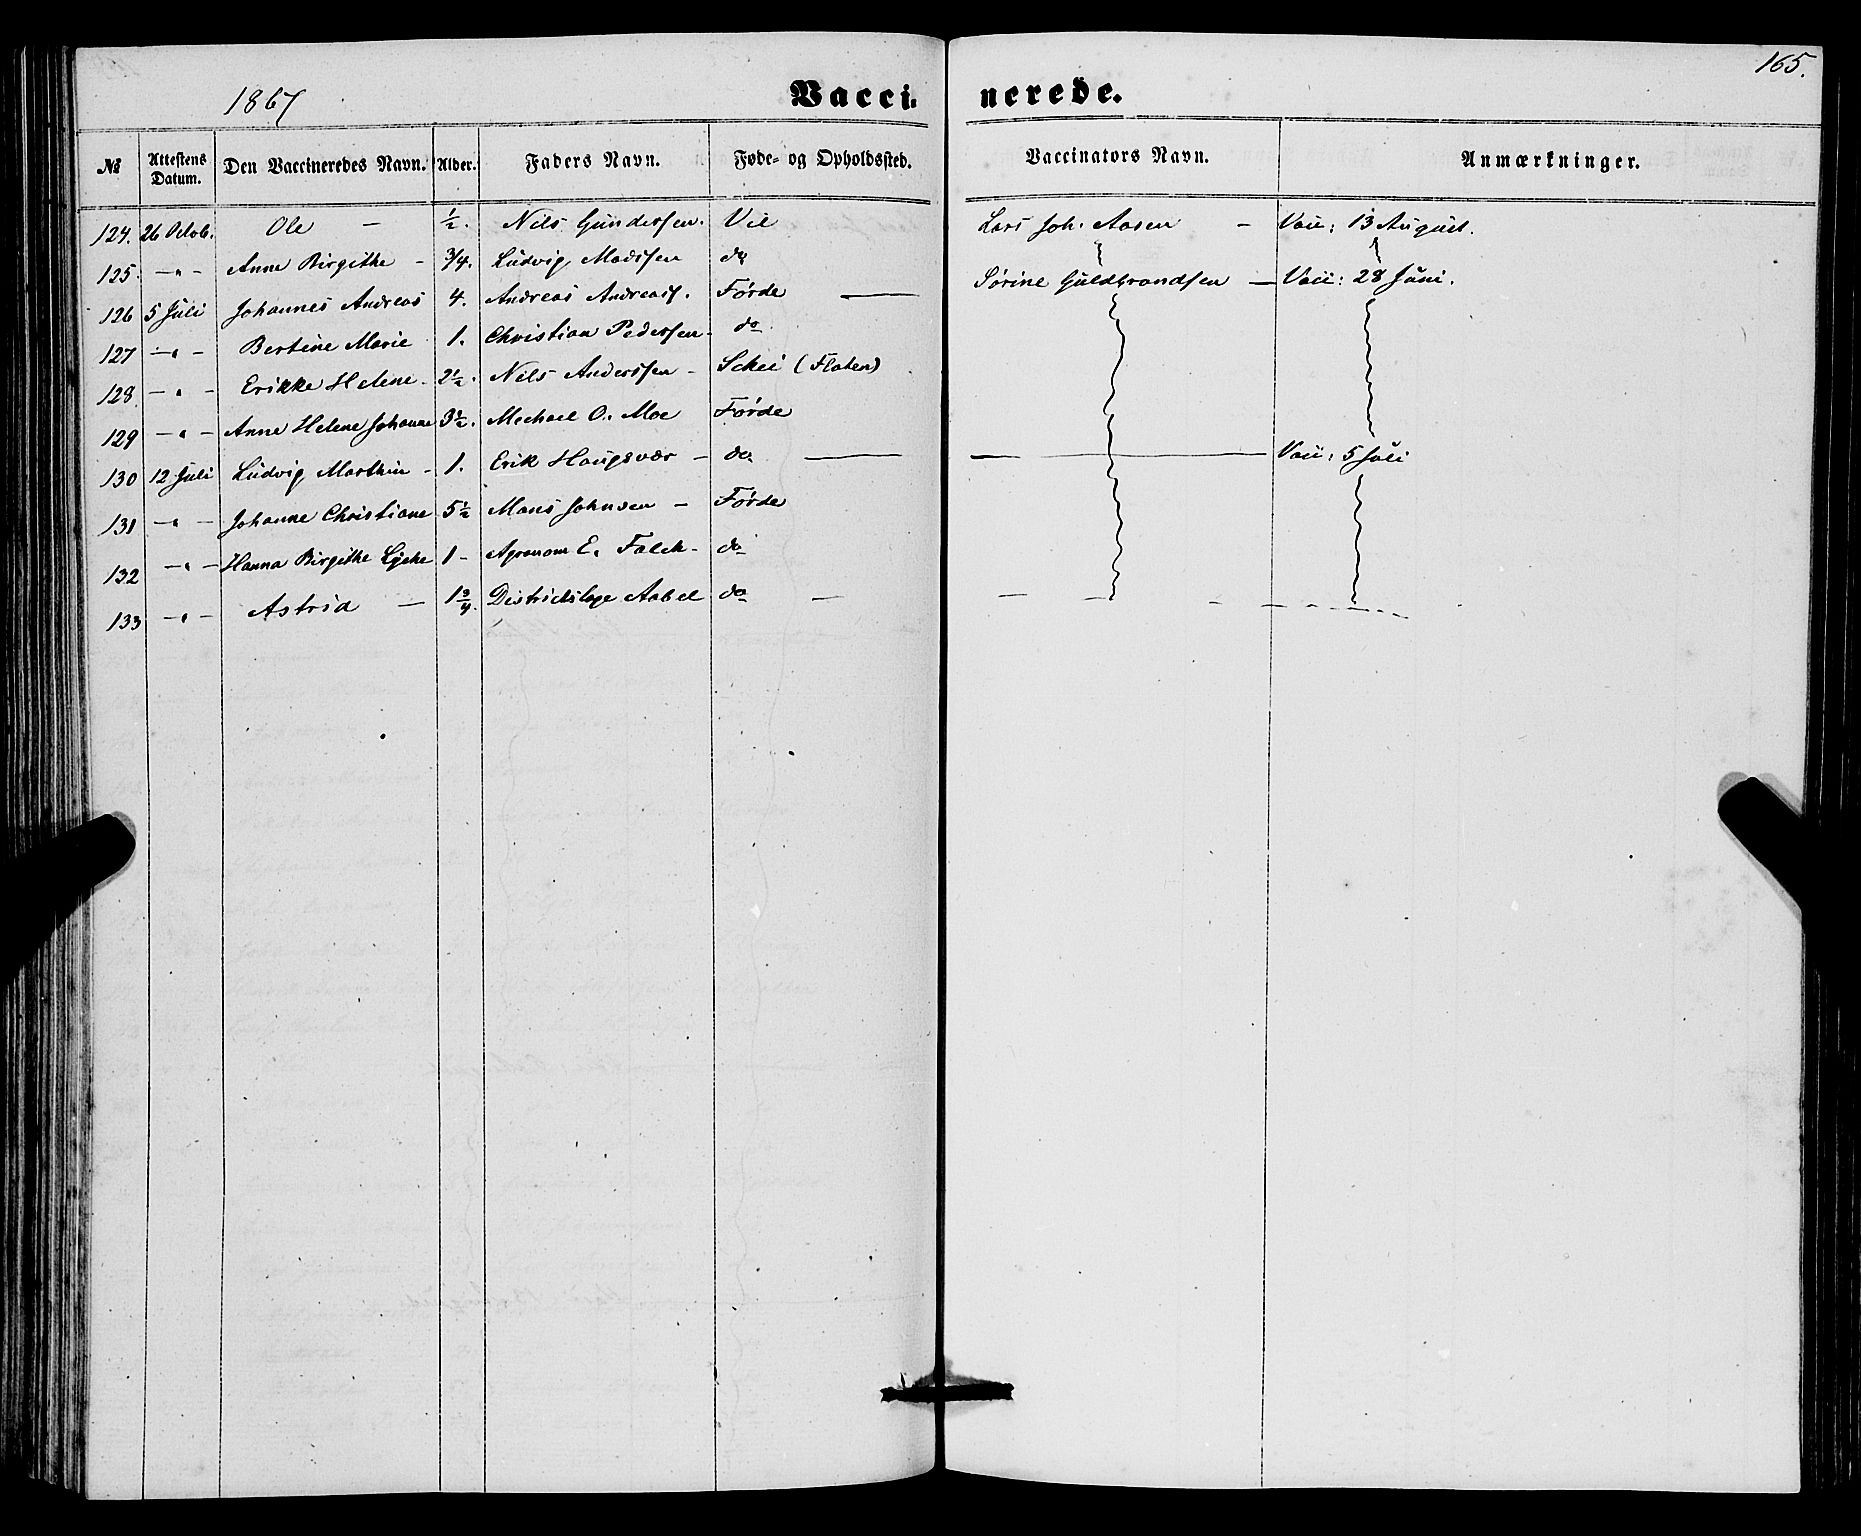 165.
1867 Vacci- nerede.
№ Attestens Datum. Den Vaccineredes Navn. Alder. Faders Navn. Føde- og Opholdssted. Vaccinators Navn. Anmærkninger.
124. 26 Octob. Ole — ½. Nils Gundersen. Vie Lars Joh. Aasen — Vacc: 13 August.
125. —"— Anne Birgithe - 3/4. Ludvig Madssen do
126 5 Juli Johannes Andreas 4. Andreas Andreass. Førde — Sørine Guldbrandsen — Vacc: 28 Juni.
127 —"— Bertine Marie 1. Christian Pedersen - do
128 —"— Erikke Helene. 2½. Nils Anderssen - Schei (Flaten)
129 —"— Anne Helene Johanne 3½. Mechael O. Moe Førde
130 12 Juli Ludvig Marthin - 1. Erik Haugsvær - do — — Vacc: 5 Juli
131 —"— Johanne Christiane 5½ Mons Johnsen - Førde
132 —"— Hanna Birgithe Lycke 1 - Agronom E. Falch - do
133 —"— Astrid — 1¾. Districtslæge Aabel do —